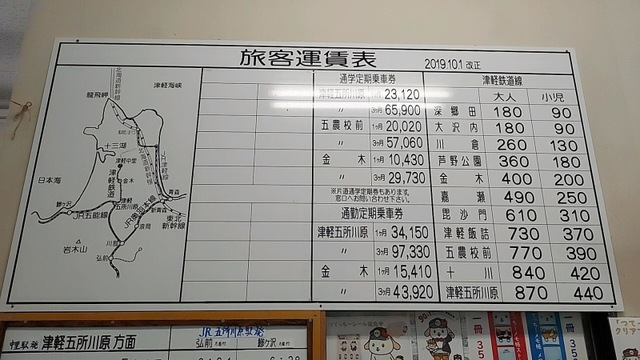 旅客運賃表
2019.10.1 改正
北海道新幹線
津軽海峡
龍飛岬
十三湖
北海道新幹線
JR津軽線
津軽中里
金木
日本海
津軽鉄道
青森
新青森
鰺ヶ沢
津軽五所川原
JR五能線
JR奥羽本線
東北新幹線
浪岡
川部
岩木山
弘前
通学定期乗車券
津軽五所川原 1ヶ月 23,120
〃 3ヶ月 65,900
五農校前 1ヶ月 20,020
〃 3ヶ月 57,060
金木 1ヶ月 10,430
〃 3ヶ月 29,730
※片道通学定期券もあります。
窓口へお問い合わせ下さい。
通勤定期乗車券
津軽五所川原 1ヶ月 34,150
〃 3ヶ月 97,330
金木 1ヶ月 15,410
〃 3ヶ月 43,920
津軽鉄道線
大人 小児
深郷田 180 90
大沢内 180 90
川倉 260 130
芦野公園 360 180
金木 400 200
嘉瀬 490 250
毘沙門 610 310
津軽飯詰 730 370
五農校前 770 390
十川 840 420
津軽五所川原 870 440
中里駅発 津軽五所川原 方面
JR五所川原駅発
弘前 方面行
鰺ヶ沢 方面行